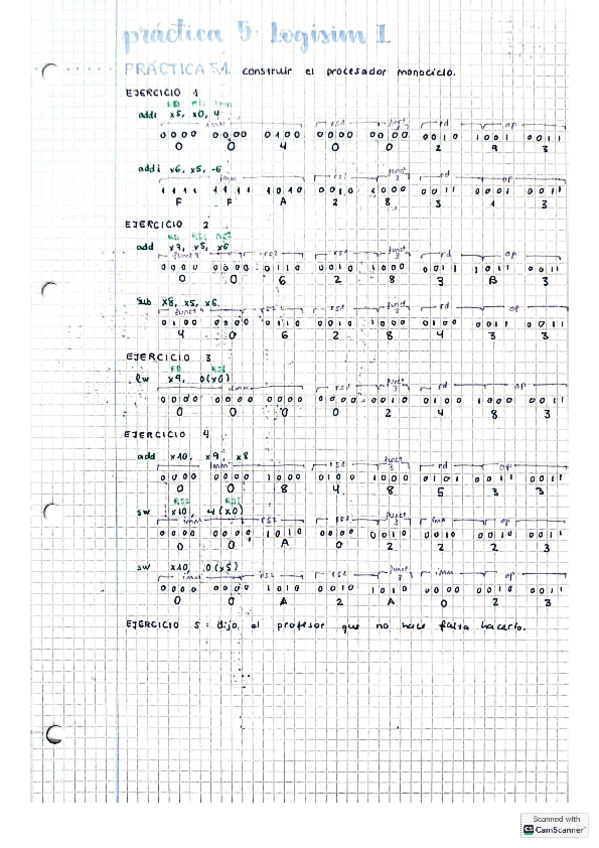 práctica 5: Logisim I
PRÁCTICA 5.1 construir el procesador monociclo.
EJERCICIO 1
RD RS1 imm
addi x5, x0, 4
imm rs1 funct3 rd op
0000 0000 0100 0000 0000 0010 1001 0011
0 0 4 0 0 2 9 3
addi x6, x5, -6
imm rs1 funct3 rd op
1111 1111 1010 0010 1000 0011 0001 0011
F F A 2 8 3 1 3
EJERCICIO 2
RD RS1 RS2
add x7, x5, x6
funct7 rs2 rs1 funct3 rd op
0000 0000 0110 0010 1000 0011 1011 0011
0 0 6 2 8 3 B 3
sub x8, x5, x6
funct7 rs2 rs1 funct3 rd op
0100 0000 0110 0010 1000 0100 0011 0011
4 0 6 2 8 4 3 3
EJERCICIO 3
RD RS1
lw x9, 0(x0)
imm rs1 funct3 rd op
0000 0000 0000 0000 0010 0100 1000 0011
0 0 0 0 2 4 8 3
EJERCICIO 4
add x10, x9, x8
imm rs1 funct3 rd op
0000 0000 1000 0100 1000 0101 0011 0011
0 0 8 4 8 5 3 3
RS2 RS1
sw x10, 4(x0)
imm rs2 rs1 funct3 imm op
0000 0000 1010 0000 0010 0010 0010 0011
0 0 A 0 2 2 2 3
sw x10, 0(x5)
imm rs2 rs1 funct3 imm op
0000 0000 1010 0010 1010 0000 0010 0011
0 0 A 2 A 0 2 3
EJERCICIO 5: dijo el profesor que no hace falta hacerlo.
Scanned with
CamScanner